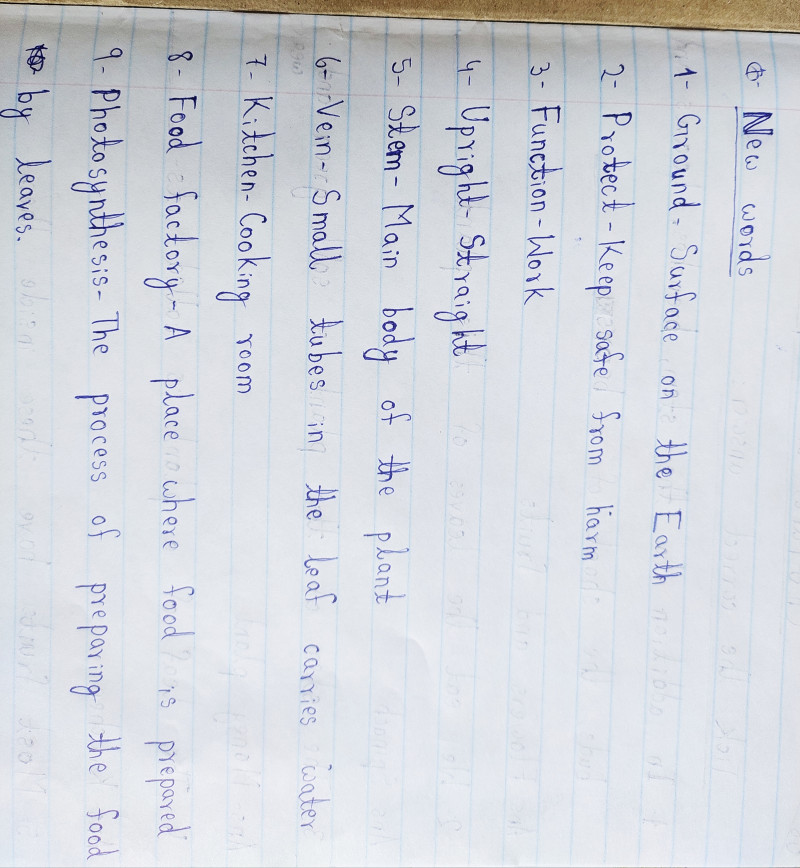 New words
1- Ground- Surface on the Earth
2- Protect-Keep safe from harm
3- Function-Work
4- Upright-Straight
5- Stem-Main body of the plant
6- Vein-Small tubes in the leaf carries water
7- Kitchen-Cooking room
8- Food factory-A place where food is prepared
9- Photosynthesis-The process of preparing the food
by leaves.